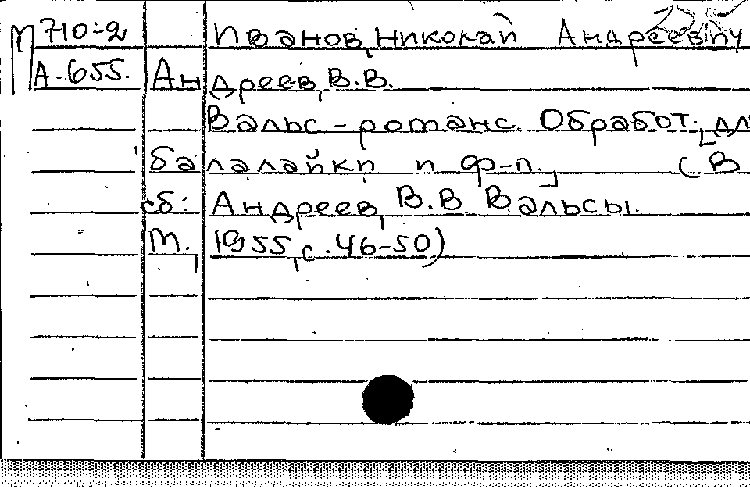 П710-2 Иванов, Николай Андреевич
А-655. Андреев, В.В.
Вальс-романс. Обработ. [дл
балалайки и ф-п.] (В
сб: Андреев, В.В Вальсы.
М., 1955, с. 46-50)